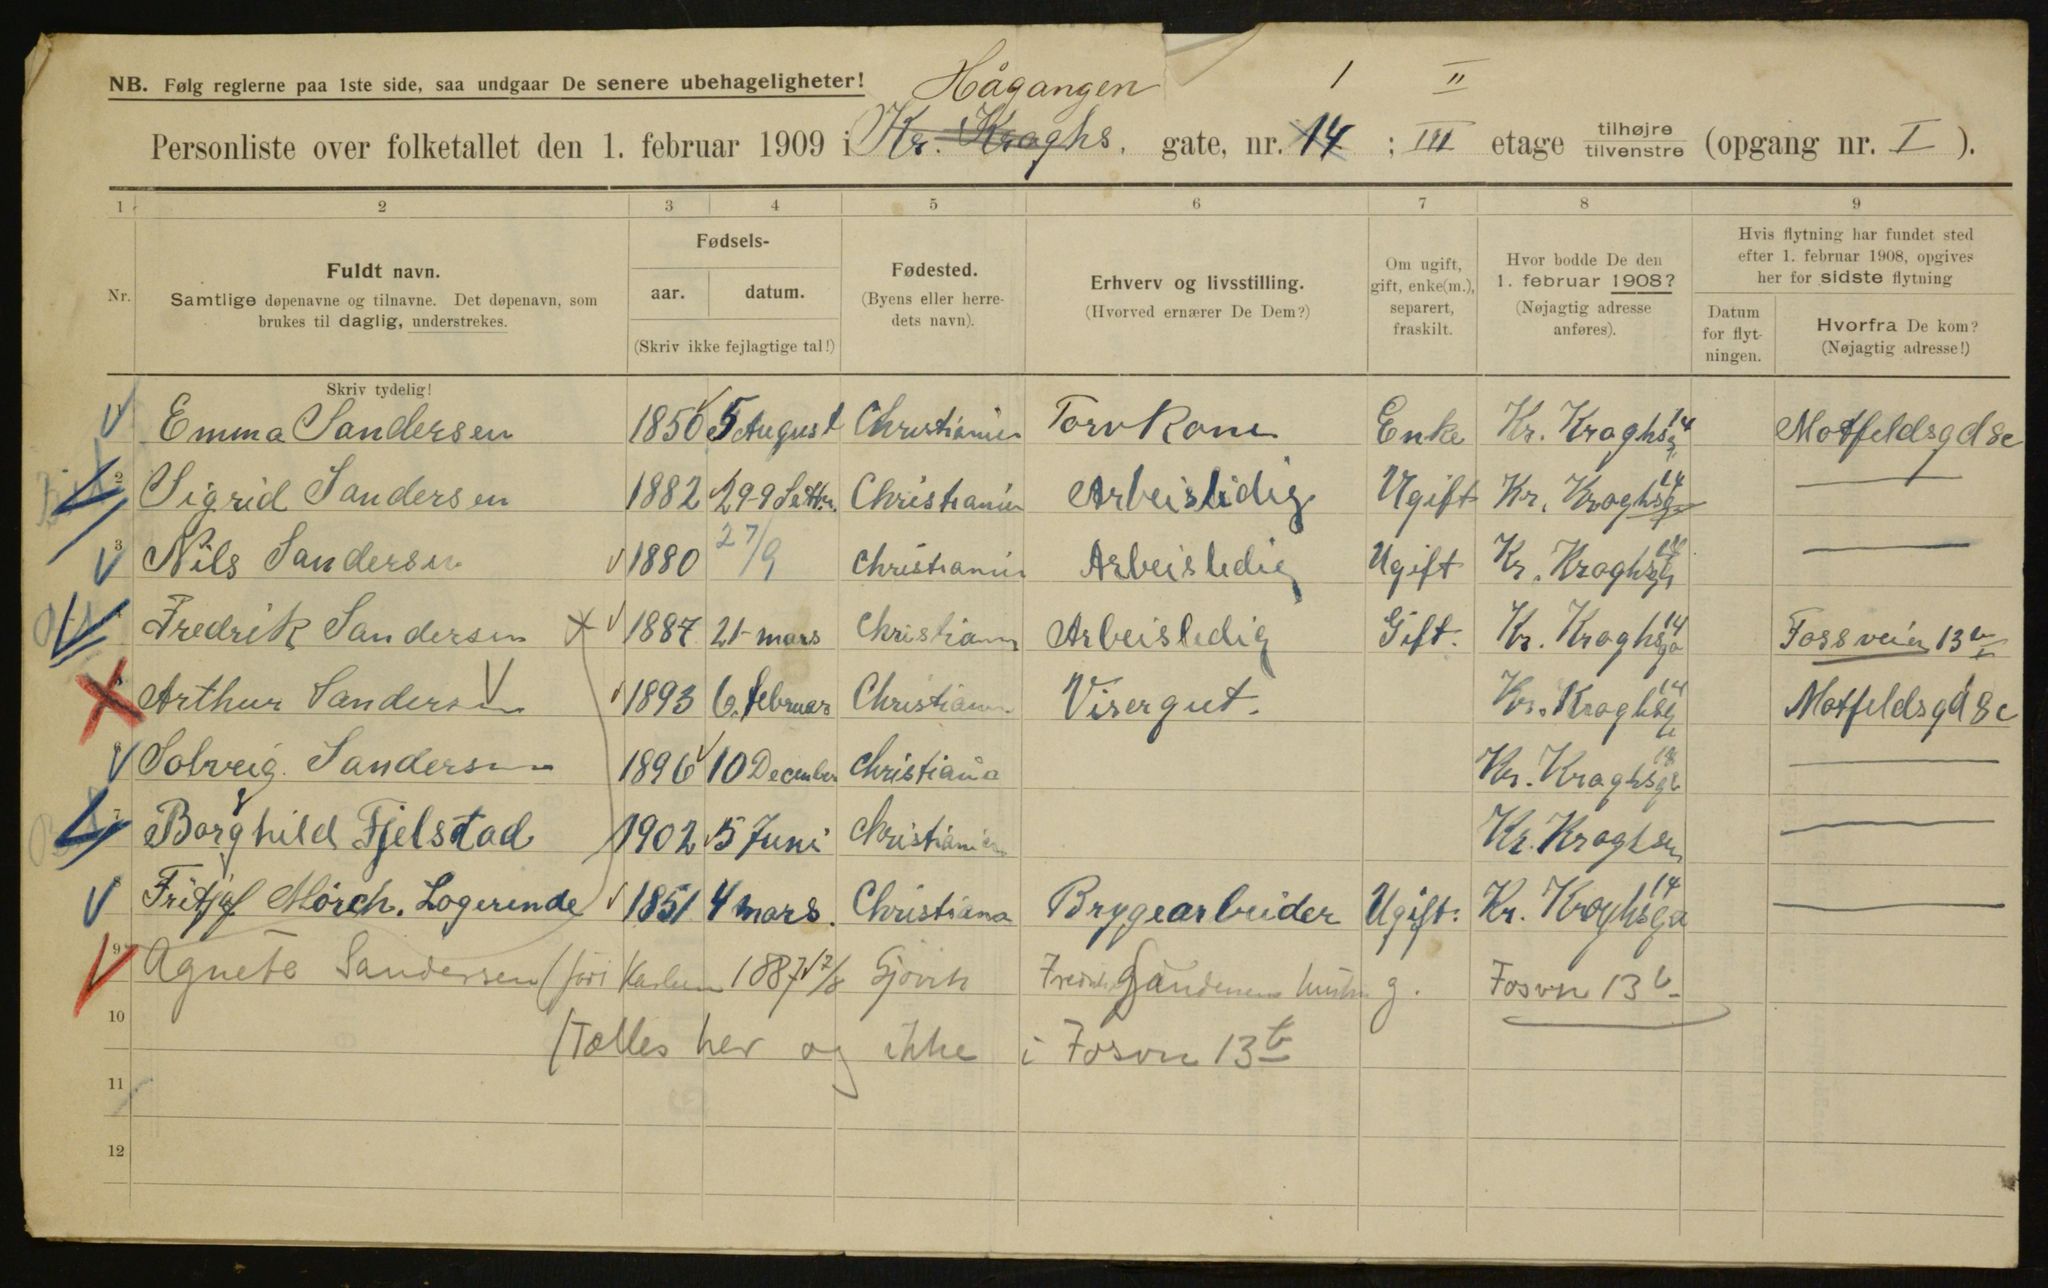 NB. Følg reglerne paa 1ste side, saa undgaar De senere ubehageligheter!
Hågangen 1 II
Personliste over folketallet den 1. februar 1909 i Kr. Kroghs. gate, nr. 14 ; III etage tilhøjre tilvenstre (opgang nr. I ).
1 2 3 4 5 6 7 8 9
Nr.
Fuldt navn.
Samtlige døpenavne og tilnavne. Det døpenavn, som
brukes til daglig, understrekes.
Skriv tydelig!
Fødsels-
aar. datum.
(Skriv ikke fejlagtige tal!)
Fødested.
(Byens eller herre-
dets navn).
Erhverv og livsstilling.
(Hvorved ernærer De Dem?)
Om ugift,
gift, enke(m.),
separert,
fraskilt.
Hvor bodde De den
1. februar 1908?
(Nøjagtig adresse
anføres).
Hvis flytning har fundet sted
efter 1. februar 1908, opgives
her for sidste flytning
Datum
for flyt-
ningen.
Hvorfra De kom?
(Nøjagtig adresse!)
1 Emma Sandersen 1850 5 August Christiania Torvkone Enke Kr. Kroghsg 14 Motfeldsgd 8c
2 Sigrid Sandersen 1882 Christiania Arbeisledig Ugift Kr. Kroghsg 14 —
3 Nils Sandersen 1880 27/9 Christiania Arbeisledig Ugift Kr. Kroghsg 14 —
Fredrik Sandersen 1887 21 mars Christiania Arbeisledig Gift. Kr. Kroghsga 14 Fossveien 13 b
Arthur Sandersen 1893 6. februar Christiania Visergut. Kr. Kroghsg 14 Motfeldsgd 8c
6 Solveig Sandersen 1896 10 December Christiania Kr. Kroghsg —
7 Borghild Fjelstad 1902 5 Juni Christiania Kr. Kroghs —
8 Fritjof Mörch. Logerende 1851 4 mars. Christiana Brygearbeider Ugift. Kr. Kroghsga 14 —
9 Agnete Sandersen (född Karlsen 1887 7/8 Gjövik Fredrik Sandersens hustru g. Fosvn 13 b
10 (Tælles her og ikke i Fosvn 13 b
11
12